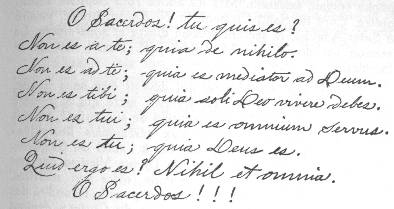 O Sacerdos! tu quis es?
Non es à te; quia de nihilo.
Non es ad te; quia es mediator ad Deum.
Non es tibi; quia soli Deo vivere debes.
Non es tui; quia es omnium servus.
Non es tu; quia Deus es.
Quid ergo es? Nihil et omnia.
O Sacerdos!!!